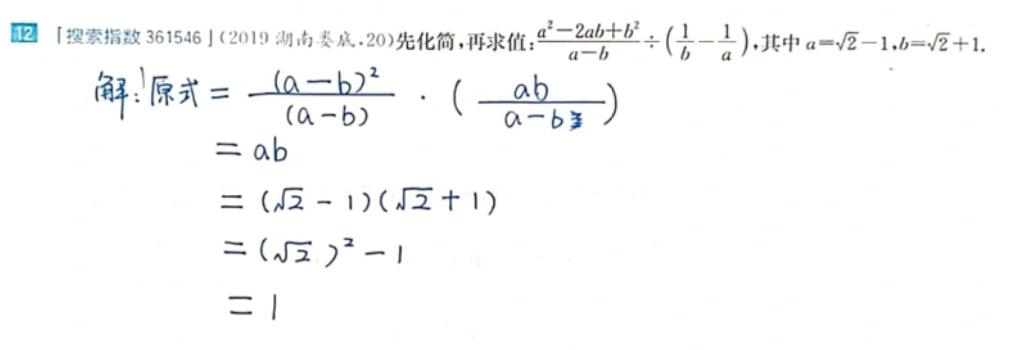 12 「搜索指数 361546」(2019 湖南娄底·20)先化简,再求值:\frac{a²-2ab+b²}{a-b}÷(\frac{1}{b}-\frac{1}{a}),其中 a=√2-1,b=√2+1.
解:原式 = \frac{(a-b)²}{(a-b)} · (\frac{ab}{a-b})
= ab
= (√2 - 1)(√2 + 1)
= (√2)² - 1
= 1